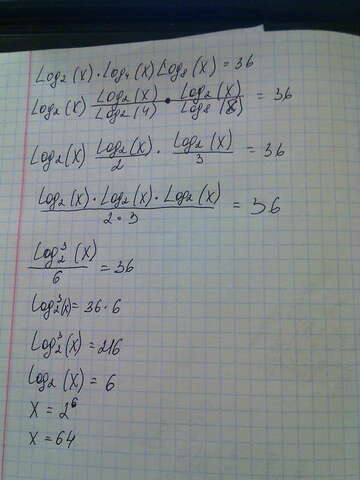 Log₂(x)·Log₄(x)Log₈(x) = 36
Log₂(x) Log₂(x)/Log₂(4) • Log₂(x)/Log₂(8) = 36
Log₂(x) Log₂(x)/2 · Log₂(x)/3 = 36
Log₂(x)·Log₂(x)·Log₂(x)/2·3 = 36
Log₂³(x)/6 = 36
Log₂³(x) = 36·6
Log₂³(x) = 216
Log₂(x) = 6
x = 2⁶
x = 64